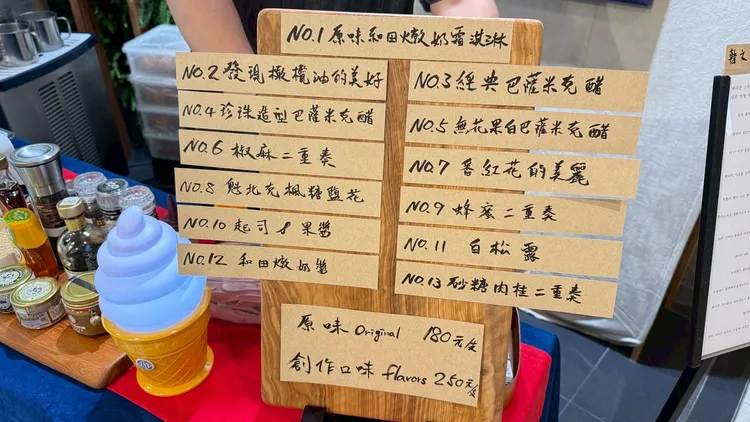 NO.1 原味和田燉奶霜淇淋
NO.2 發現橄欖油的美好
NO.3 經典巴薩米克醋
NO.4 珍珠造型巴薩米克醋
NO.5 無花果白巴薩米克醋
NO.6 椒麻二重奏
NO.7 番紅花的美麗
NO.8 魁北克楓糖鹽花
NO.9 蜂蜜二重奏
NO.10 起司&果醬
NO.11 白松露
NO.12 和田燉奶醬
NO.13 砂糖肉桂二重奏
原味 Original 180元/支
創作口味 flavors 250元/支